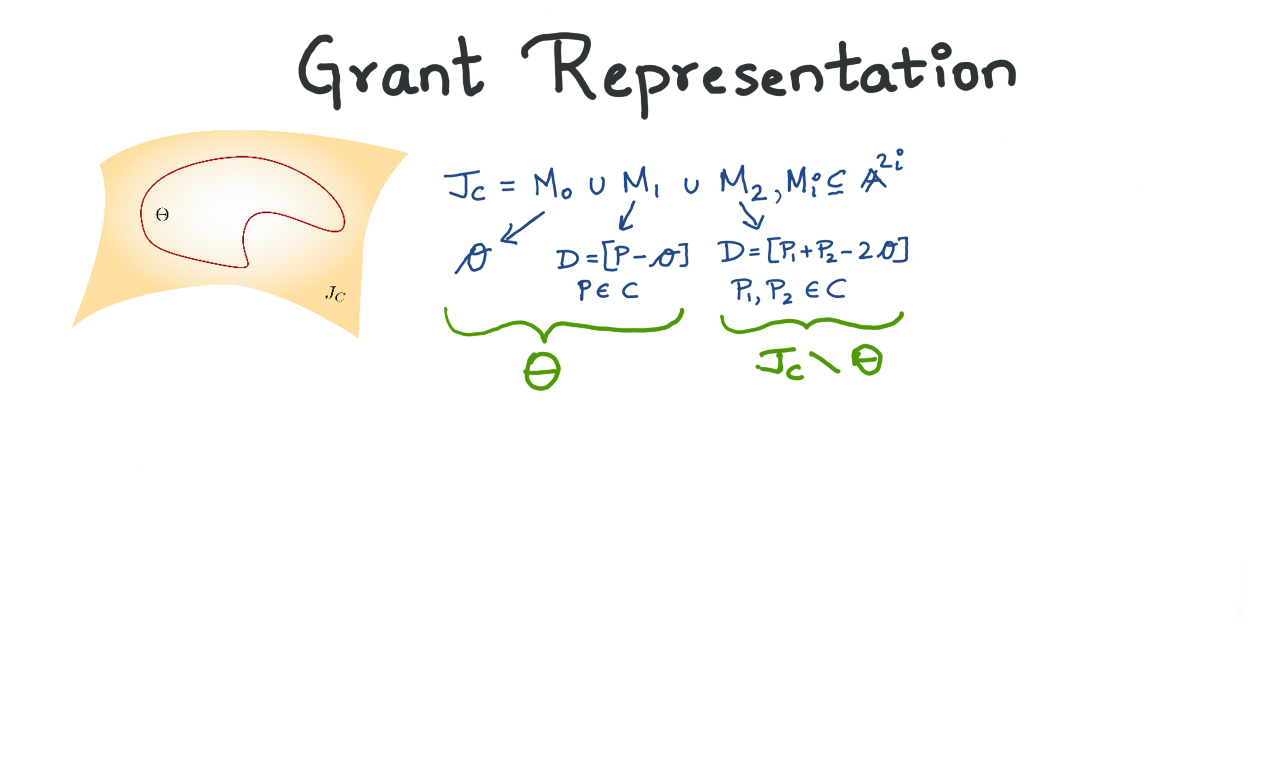 Grant Representation
Θ
J_C
J_C = M_0 ∪ M_1 ∪ M_2, M_i ⊆ 𝔸^{2i}
𝒪
D = [P - 𝒪]
P ∈ C
D = [P_1 + P_2 - 2𝒪]
P_1, P_2 ∈ C
Θ
J_C \ Θ